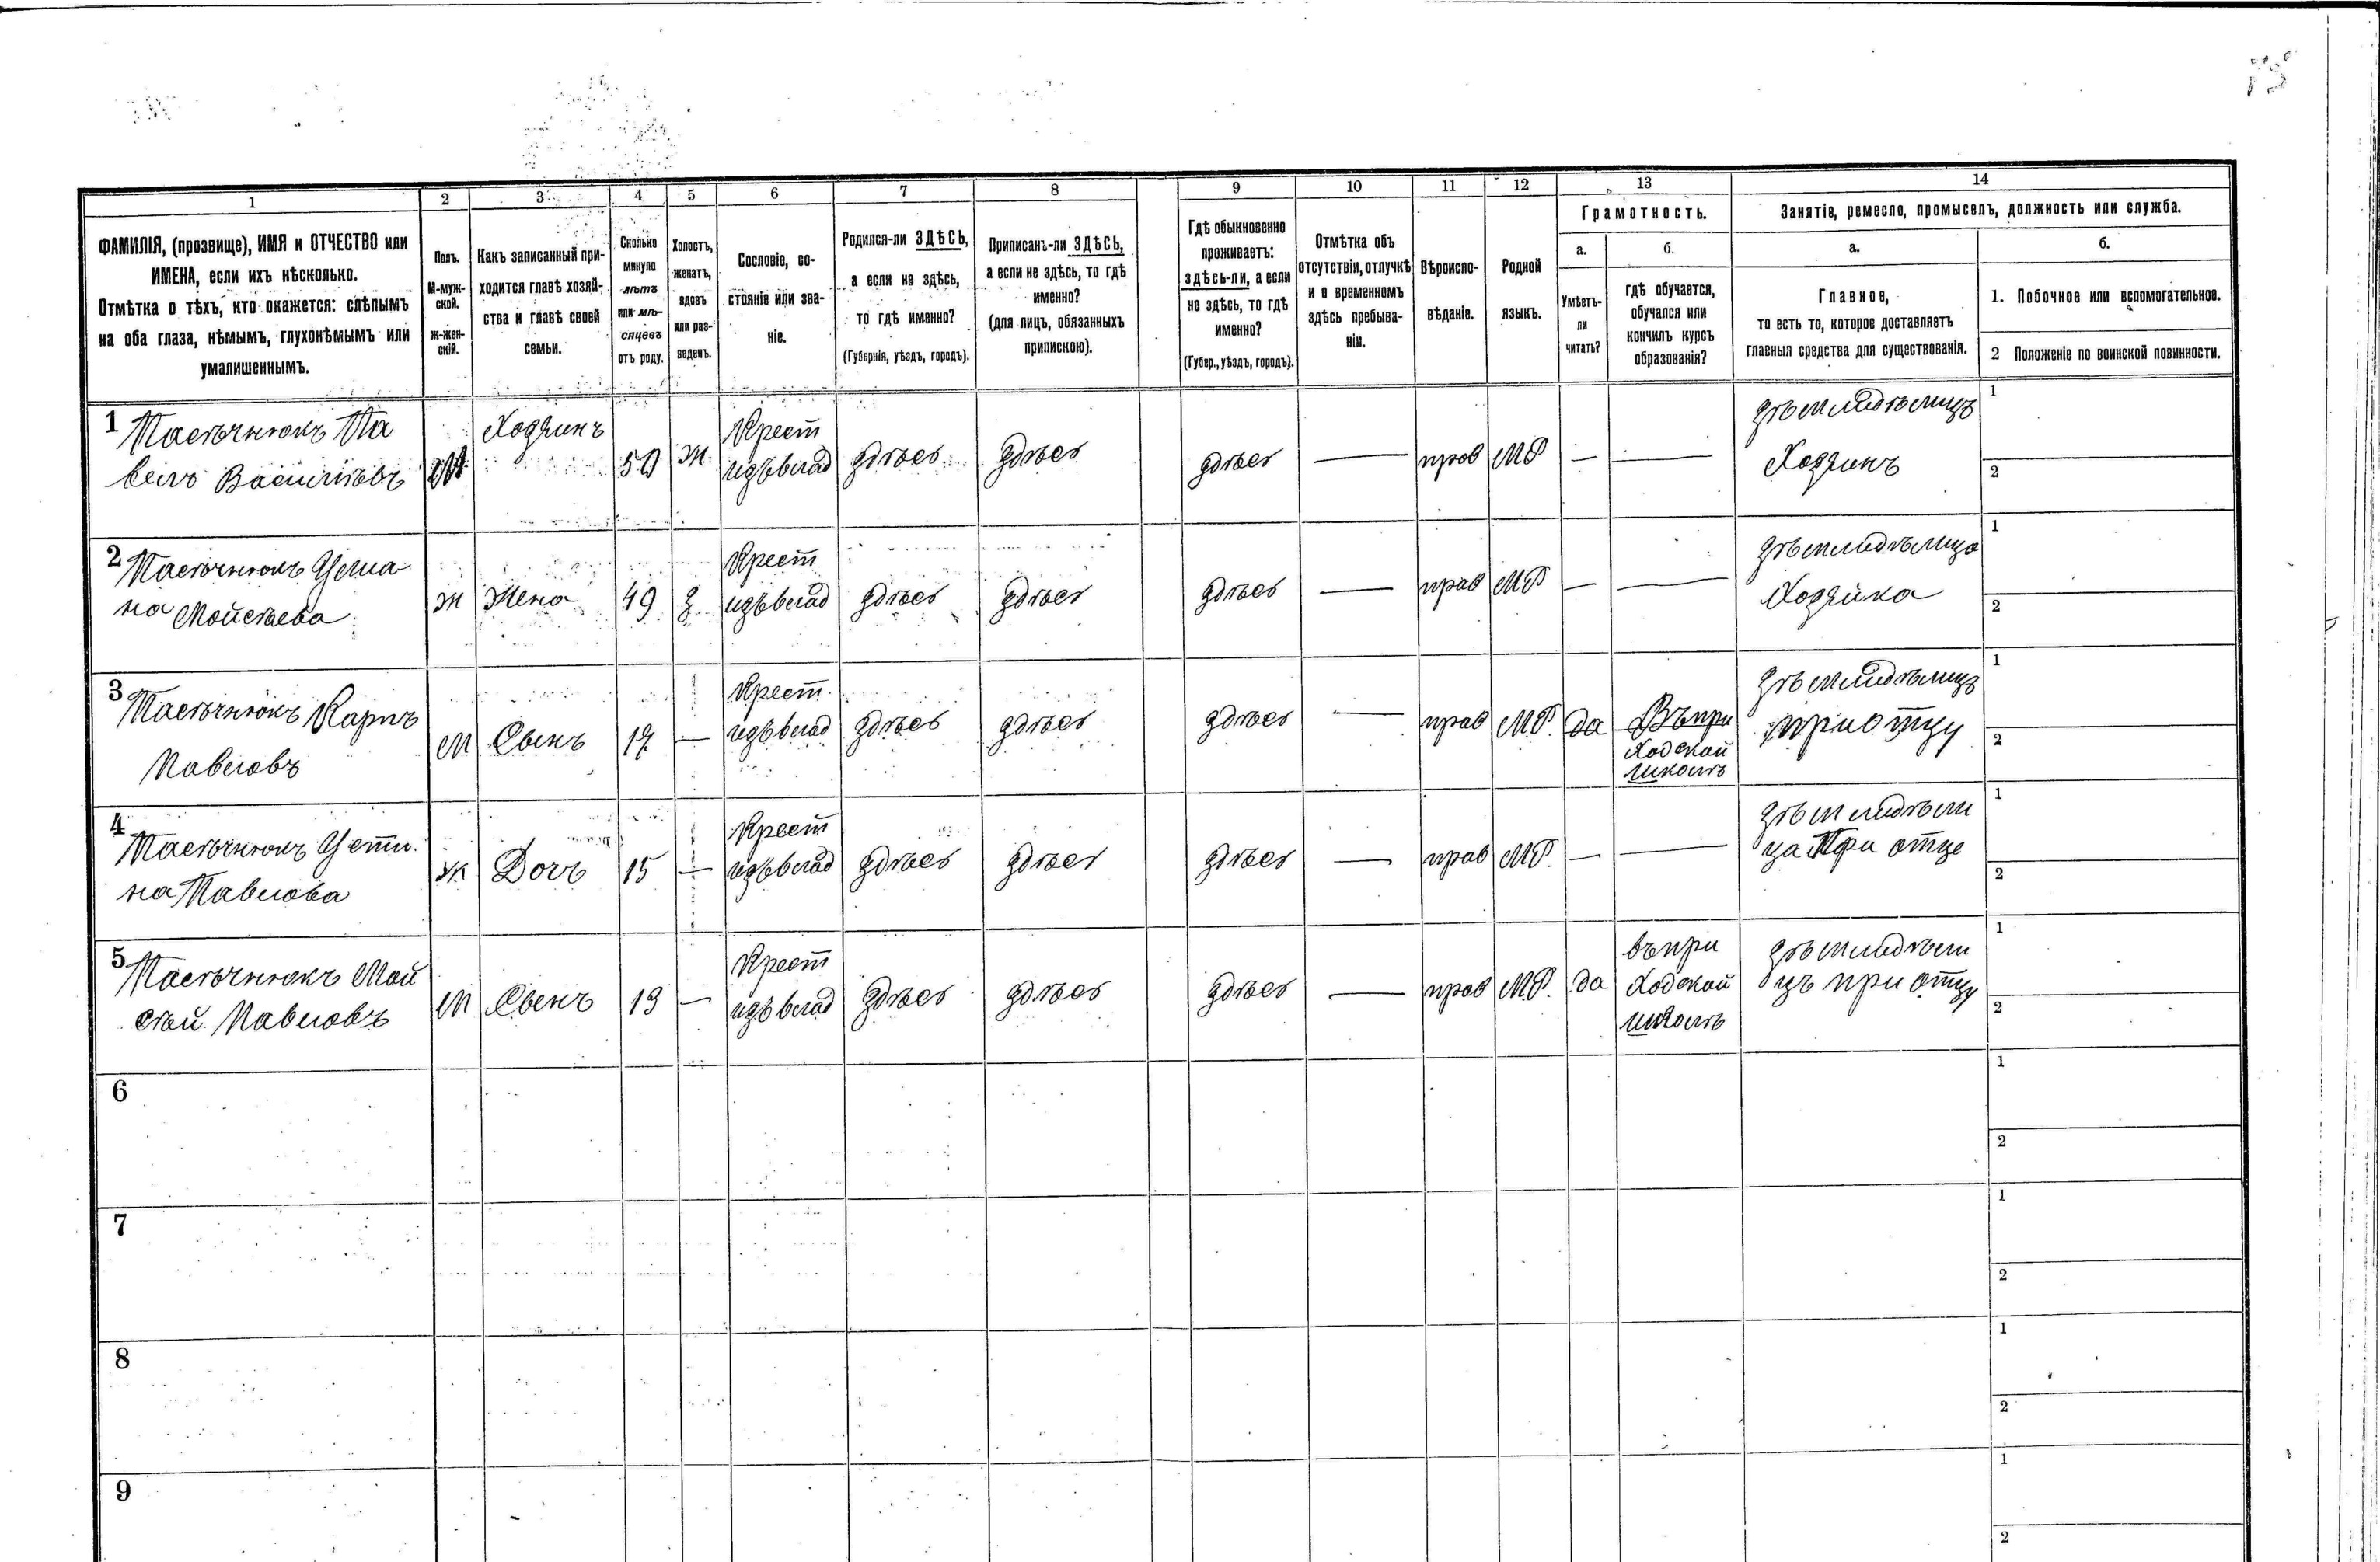 75
1
2
3
4
5
6
7
8
9
10
11
12
13
14
ФАМИЛІЯ, (прозвище), ИМЯ и ОТЧЕСТВО или
ИМЕНА, если ихъ нѣсколько.
Отмѣтка о тѣхъ, кто окажется: слѣпымъ
на оба глаза, нѣмымъ, глухонѣмымъ или
умалишеннымъ.
Полъ.
М-муж-
ской.
ж-жен-
скій.
Какъ записанный при-
ходится главѣ хозяй-
ства и главѣ своей
семьи.
Сколько
минуло
лѣтъ
или мѣ-
сяцевъ
отъ роду.
Холостъ,
женатъ,
вдовъ
или раз-
веденъ.
Сословіе, со-
стояніе или зва-
ніе.
Родился-ли ЗДѢСЬ,
а если не здѣсь,
то гдѣ именно?
(Губернія, уѣздъ, городъ).
Приписанъ-ли ЗДѢСЬ,
а если не здѣсь, то гдѣ
именно?
(для лицъ, обязанныхъ
припискою).
Гдѣ обыкновенно
проживаетъ:
здѣсь-ли, а если
не здѣсь, то гдѣ
именно?
(Губер., уѣздъ, городъ).
Отмѣтка объ
отсутствіи, отлучкѣ
и о временномъ
здѣсь пребыва-
ніи.
Вѣроиспо-
вѣданіе.
Родной
языкъ.
Грамотность.
а.
Умѣетъ-
ли
читать?
б.
гдѣ обучается,
обучался или
кончилъ курсъ
образованія?
Занятіе, ремесло, промыселъ, должность или служба.
а.
Главное,
то есть то, которое доставляетъ
главныя средства для существованія.
б.
1. Побочное или вспомогательное.
2 Положеніе по воинской повинности.
1
Па
велъ Васильевъ
М
Хозяинъ
50
Ж
Крест
изъ влад
здѣсь
здѣсь
здѣсь
—
прав
МР
—
—
Хозяинъ
1
2
2
на Мойсѣева
Ж
Жена
49
З
Крест
изъ влад
здѣсь
здѣсь
здѣсь
—
прав
МР
—
—
Хозяйка
1
2
3
Карпъ
Павловъ
М
Сынъ
17
—
Крест
изъ влад
здѣсь
здѣсь
здѣсь
—
прав
МР.
да
Въ при
ходской
школѣ
при отцу
1
2
4
Усти
на Павлова
Ж
Дочъ
15
—
Крест
изъ влад
здѣсь
здѣсь
здѣсь
—
прав
МР.
—
—
ца При отце
1
2
5
Мой
сѣй Павловъ
М
Сынъ
13
—
Крест
изъ влад
здѣсь
здѣсь
здѣсь
—
прав
МР.
да
въ при
ходской
школѣ
цъ при отцу
1
2
6
1
2
7
1
2
8
1
2
9
1
2